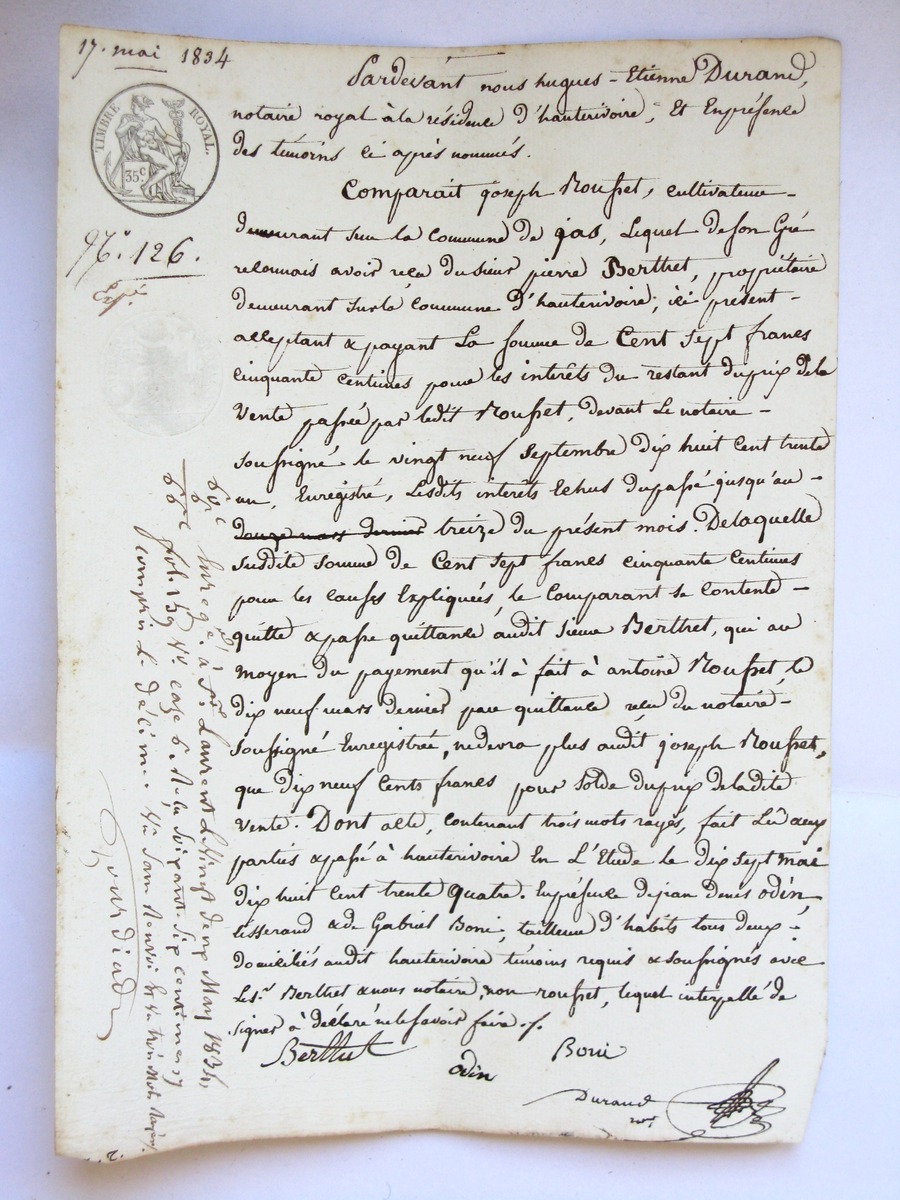 17. mai 1834
TIMBRE ROYAL.
35c.
N.o 126.
Expé.
Pardevant nous hugues-Etienne Durand,
notaire royal à la résidence d'hauterivoire, Et En présence
des témoins ci après nommés.
Comparait joseph Rousset, cultivateur
demeurant sur la commune de jas, Lequel de son Gré
reconnais avoir reçu du sieur pierre Berthet, propriétaire
demeurant sur la commune d'hauterivoire, ici présent
acceptant & payant La somme de Cent Sept francs
cinquante centimes pour les interêts du restant du prix de la
Vente passée par ledit Rousset, devant Le notaire
soussigné le vingt neuf Septembre Dix huit Cent trente
un, Enregistré, Lesdits interêts Echus du passé jusqu'au
treize du présent mois. De laquelle
susdite somme de Cent sept francs cinquante Centimes
pour les causes Expliquées, le Comparant se contente
quitte & passe quittance audit sieur Berthet, qui au
moyen du payement qu'il à fait à antoine Rousset, le
dix neuf mars dernier par quittance reçu du notaire
soussigné Enregistrée, ne devra plus audit joseph Rousset,
que Dix neuf Cents francs pour solde du prix de ladite
vente. Dont acte, contenant trois mots rayés, fait Lu aux
parties & passé à hauterivoire En L'Etude le dix sept mai
dix huit cent trente quatre. En présence de jean Denis odin,
tisserand & de Gabriel Boni, tailleur d'habits tous deux
domiciliés audit hauterivoire témoins requis & soussignés avec
Le s.r Berthet & nous notaire, non rousset, lequel interpellé de
signer à déclaré ne le savoir faire ./.
Berthet
odin
Boni
Durand
not.
Enregé. à St. Laurent le vingt deux May 1834,
fol. 159 V.o case 6. Reçu soixante six centimes
compris le décime
Gourdiad